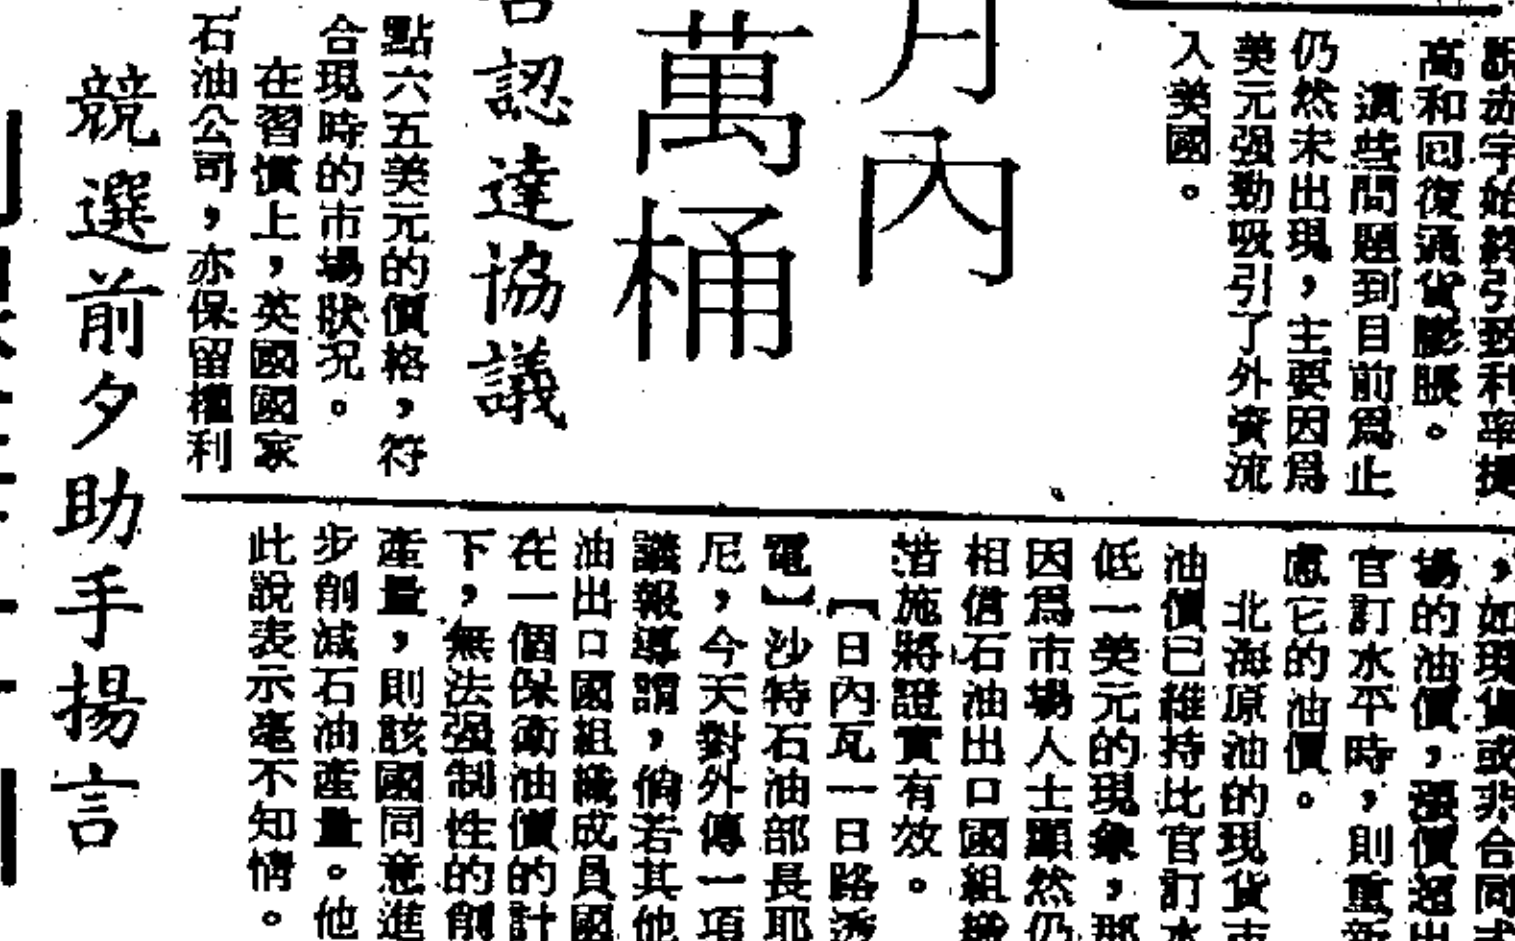 說赤字始終引致利率提
高和回復通貨膨脹。
還些問題到目前爲止
仍然未出現，主要因爲
美元强勁吸引了外資流
入美國。
月內
萬桶
否認達協議
點六五美元的價格，符
合現時的市場狀况。
在習慣上，英國國家
石油公司，亦保留權利
，如現貨或非合同
場的油價，現價超出
官訂水平時，則重新
慮它的油價。
北海原油的現貨市
油價已維持比官訂水
低一美元的現象，那
因爲市場人士顯然仍
相信石油出口國組織
措施將證實有效。
【日內瓦一日路透
電】沙特石油部長耶
尼，今天對外傳一項
議報導謂，倘若其他
油出口國組織成員國
在一個保衛油價的計
下，無法强制性的削
產量，則該國同意進
步削减石油產量。他
此說表示毫不知情。
競選前夕助手揚言